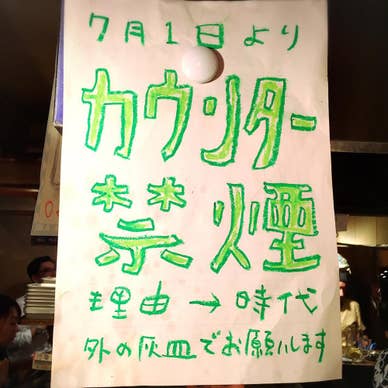 7月1日より
カウンター
禁煙
理由→時代
外の灰皿でお願いします